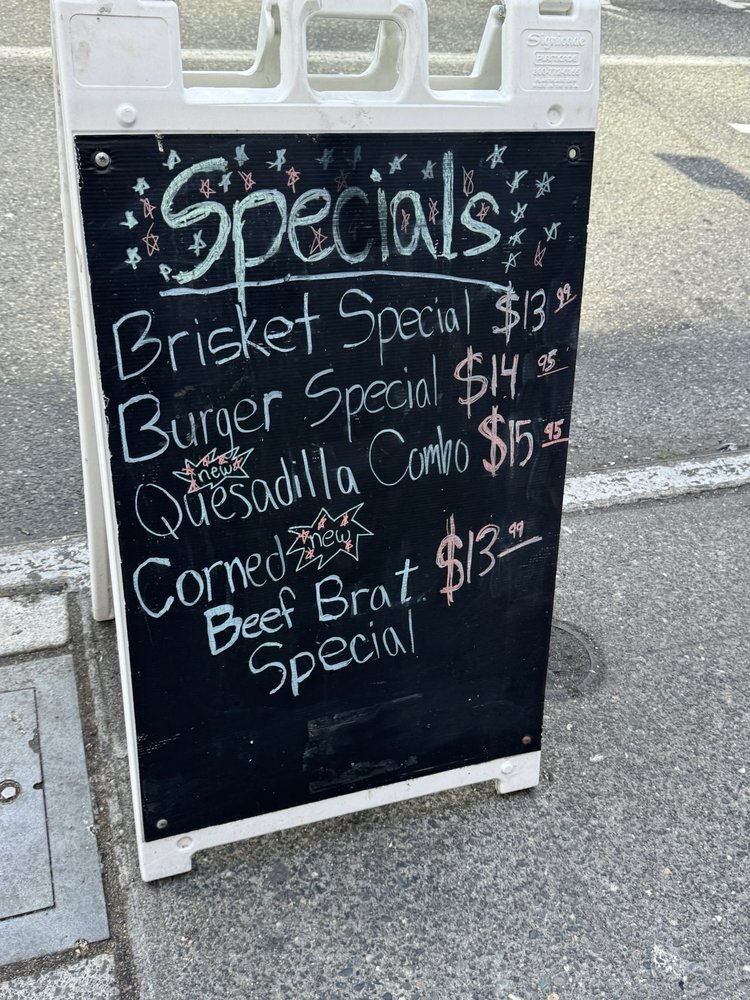 Signicade
Specials
Brisket Special $13.99
Burger Special $14.95
new
Quesadilla Combo $15.95
Corned new
Beef Brat $13.99
Special